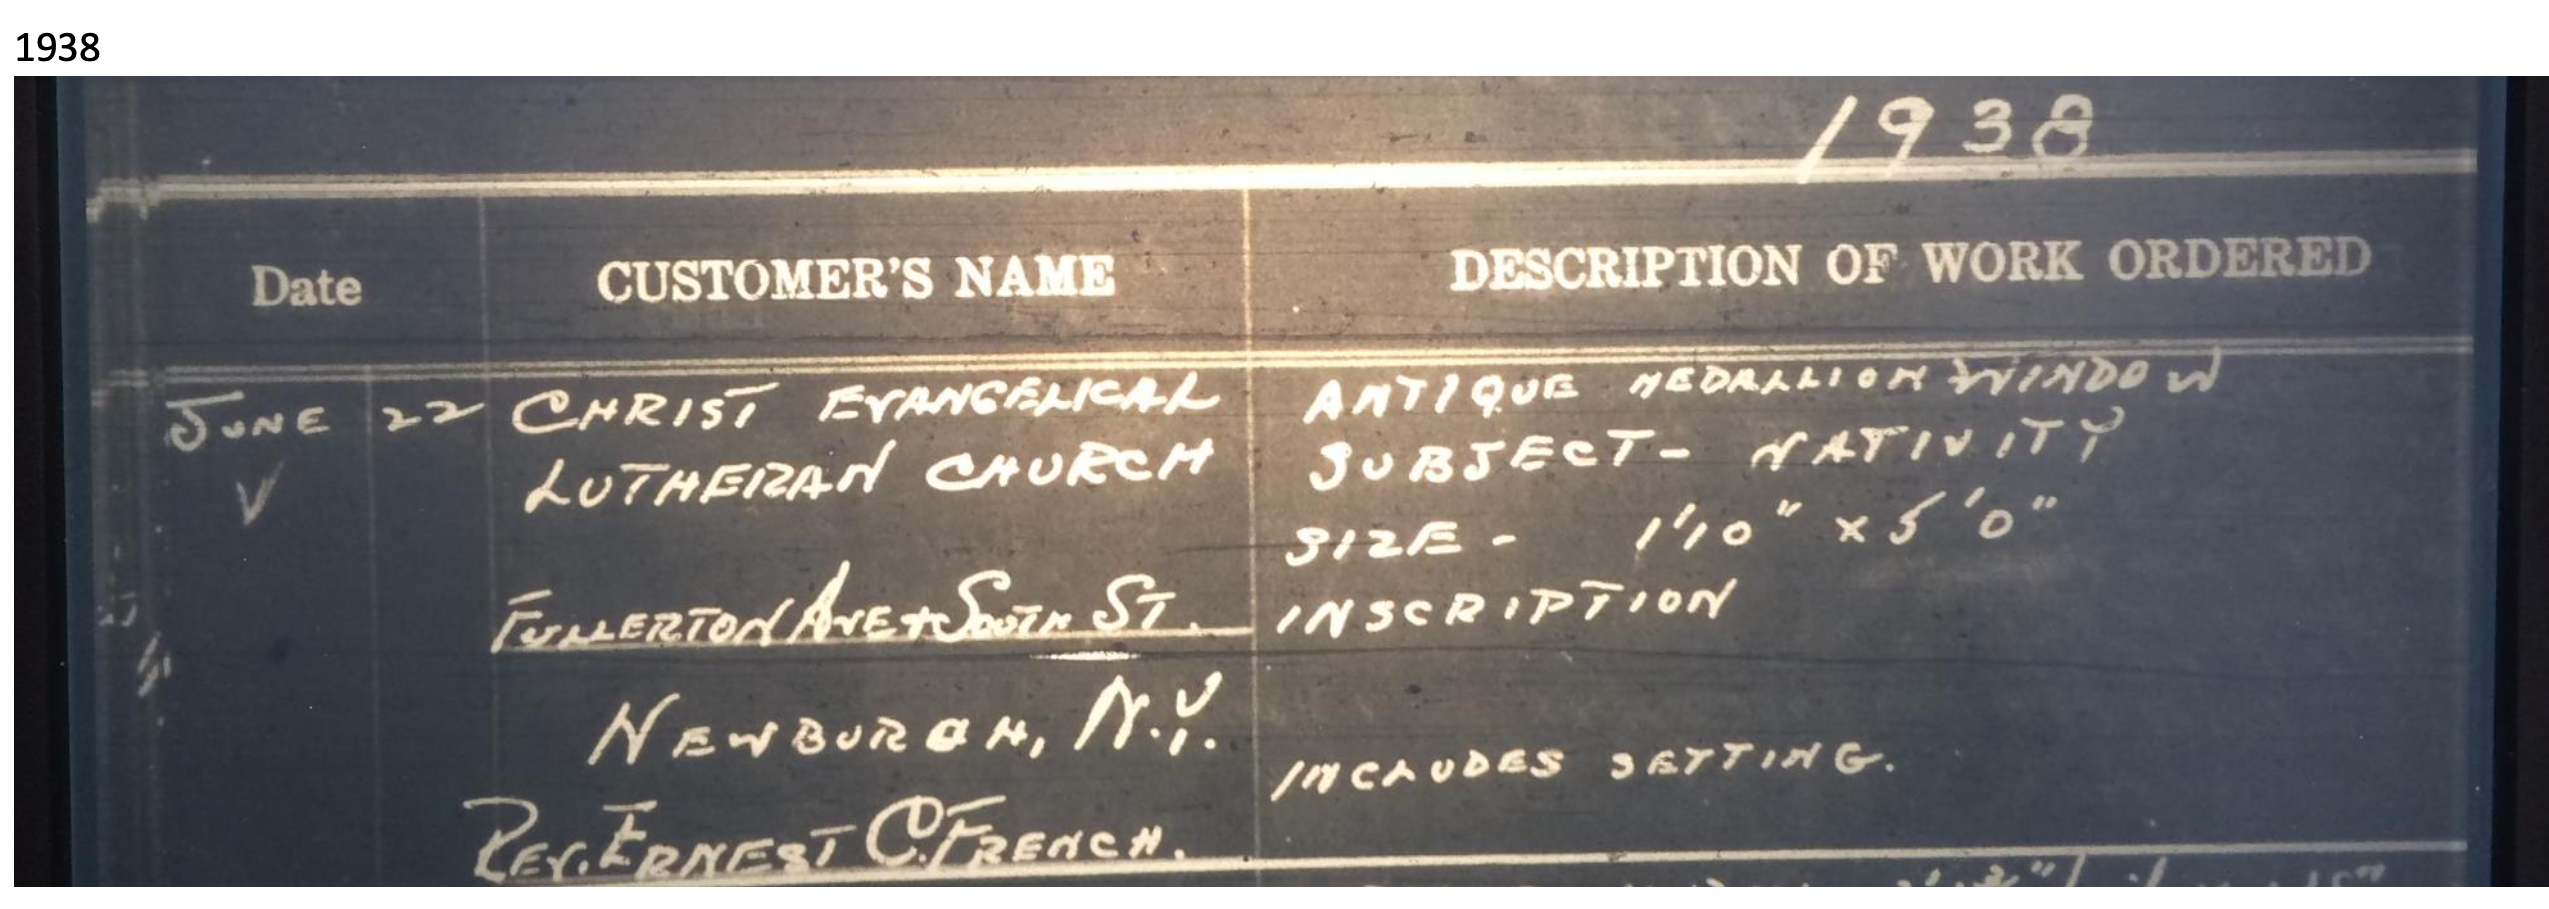 1938
1938
Date CUSTOMER'S NAME DESCRIPTION OF WORK ORDERED
JUNE 22 CHRIST EVANGELICAL ANTIQUE MEDALLION WINDOW
LUTHERAN CHURCH SUBJECT- NATIVITY
SIZE - 1'10" x 5'0"
FULLERTON AVE + SOUTH ST. INSCRIPTION
NEWBURGH, N.Y.
INCLUDES SETTING.
REV. ERNEST C. FRENCH.